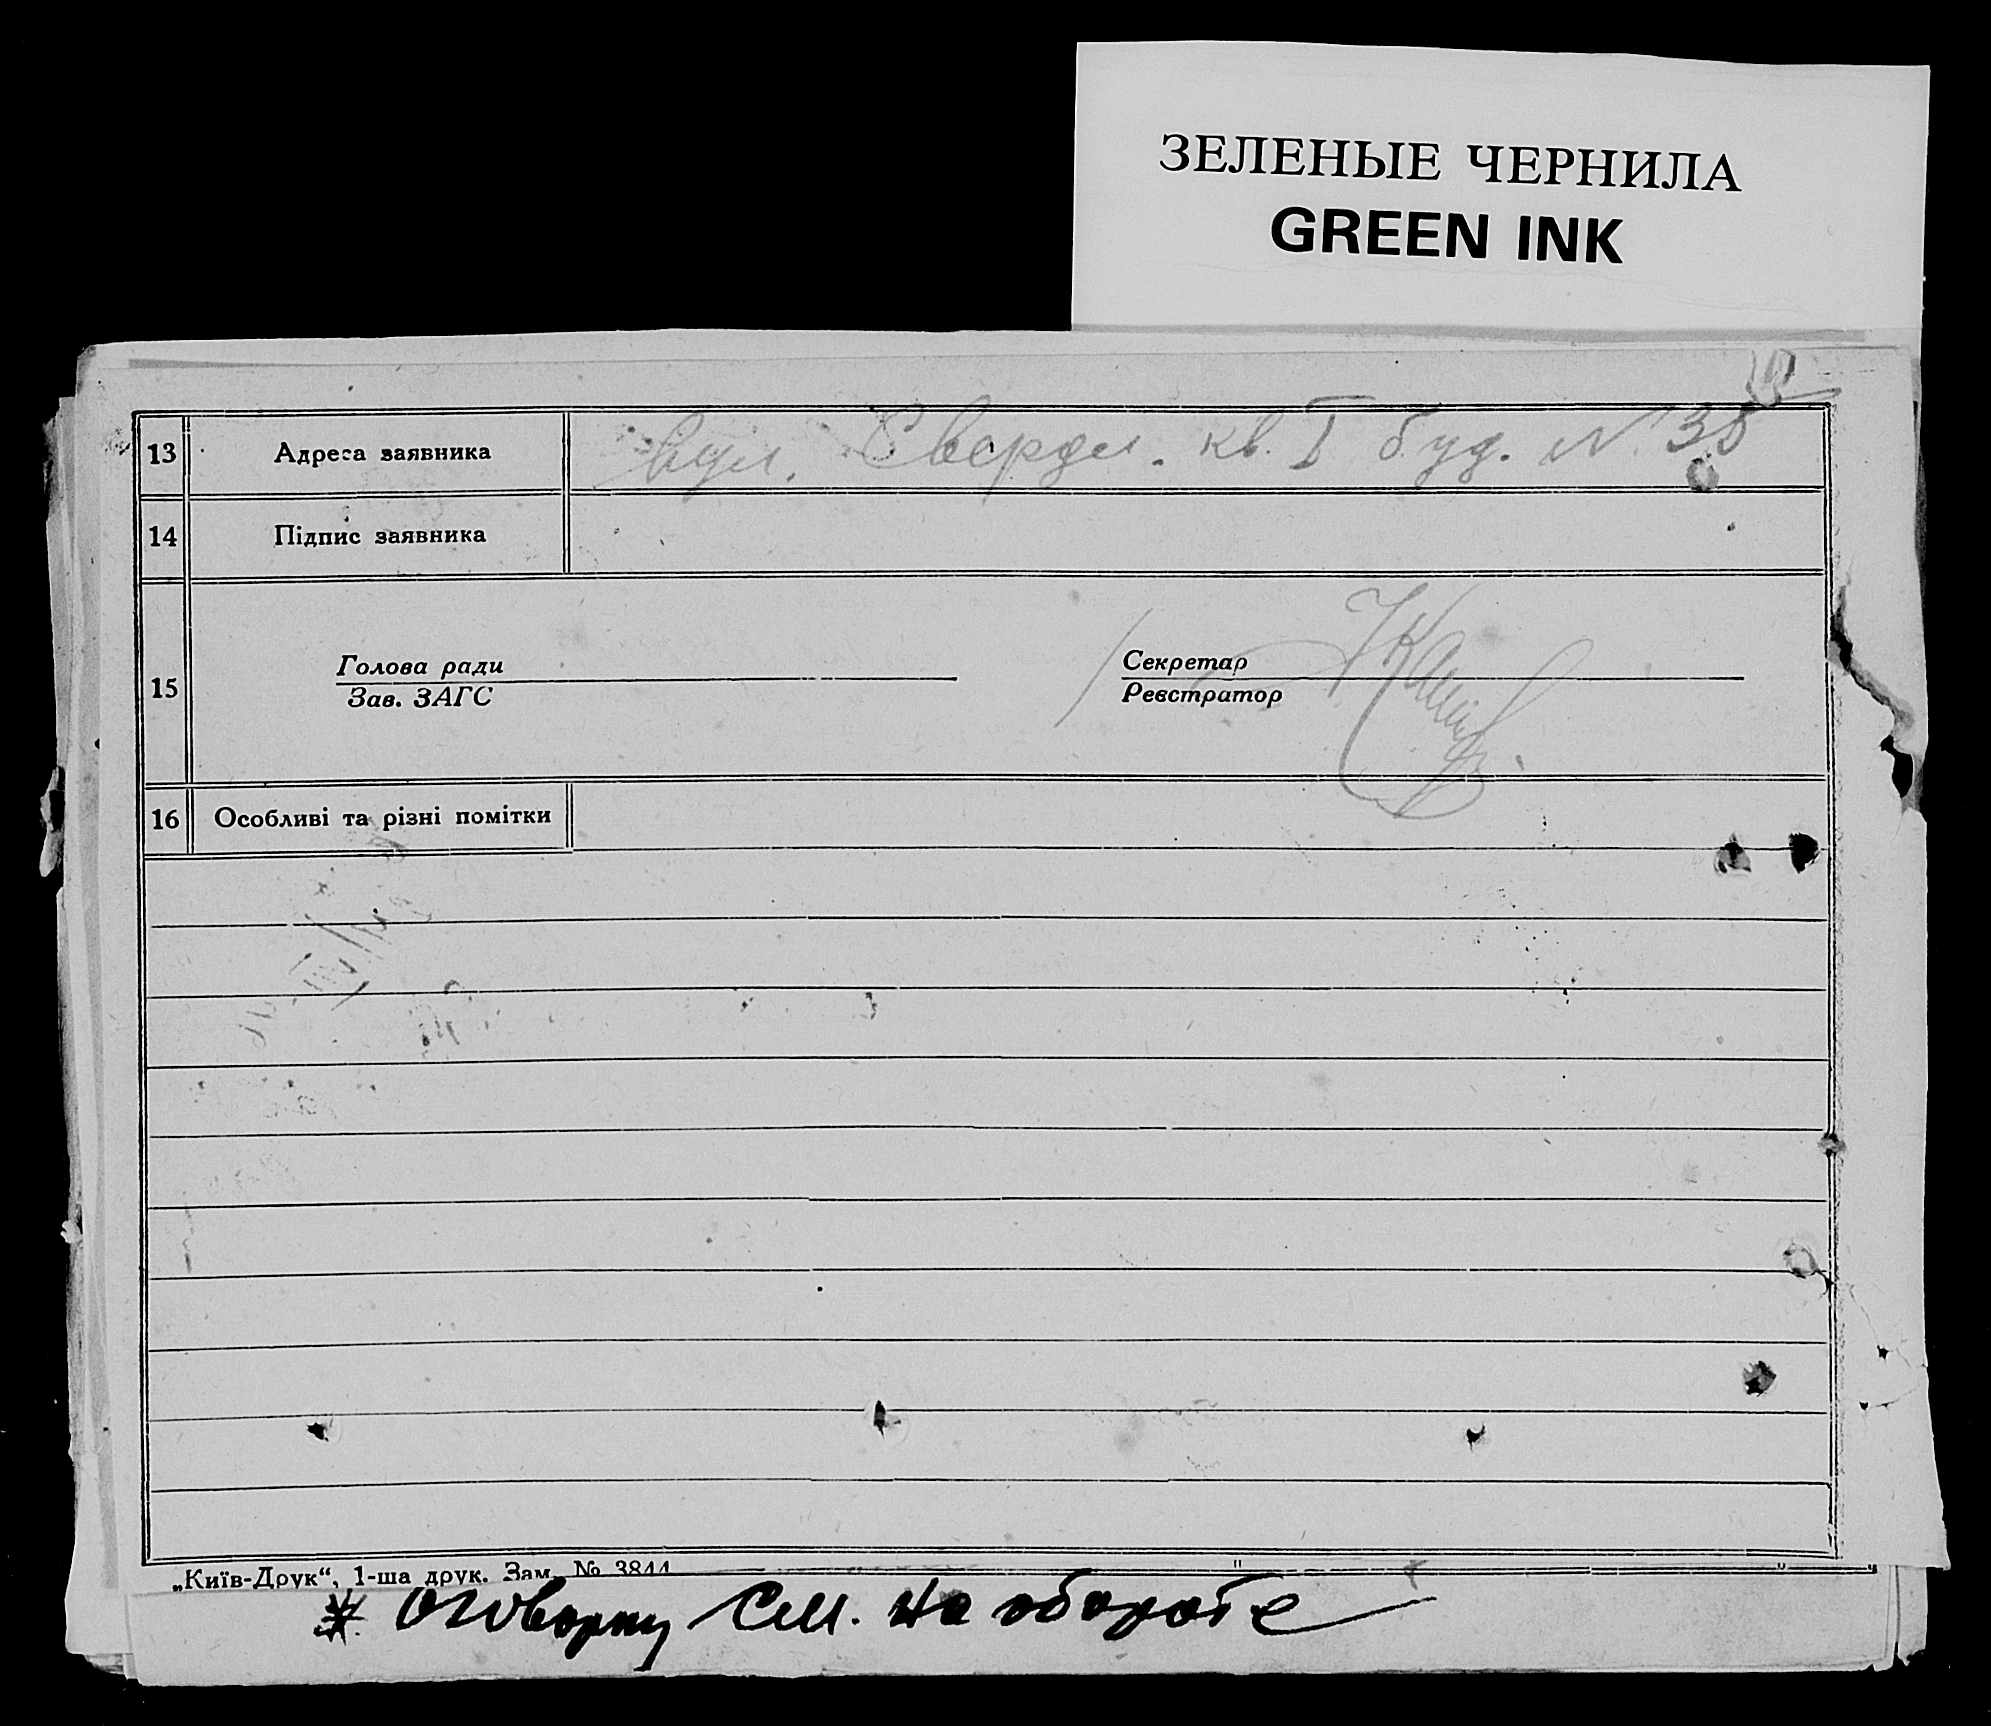 ЗЕЛЕНЫЕ ЧЕРНИЛА
GREEN INK
13 Адреса заявника вул. Свердл. кв. I буд. № 38
14 Підпис заявника
15 Голова ради Секретар
Зав. ЗАГС Реєстратор
16 Особливі та різні помітки
„Київ-Друк“, 1-ша друк. Зам. № 3844
* Оговорку См. на обороте